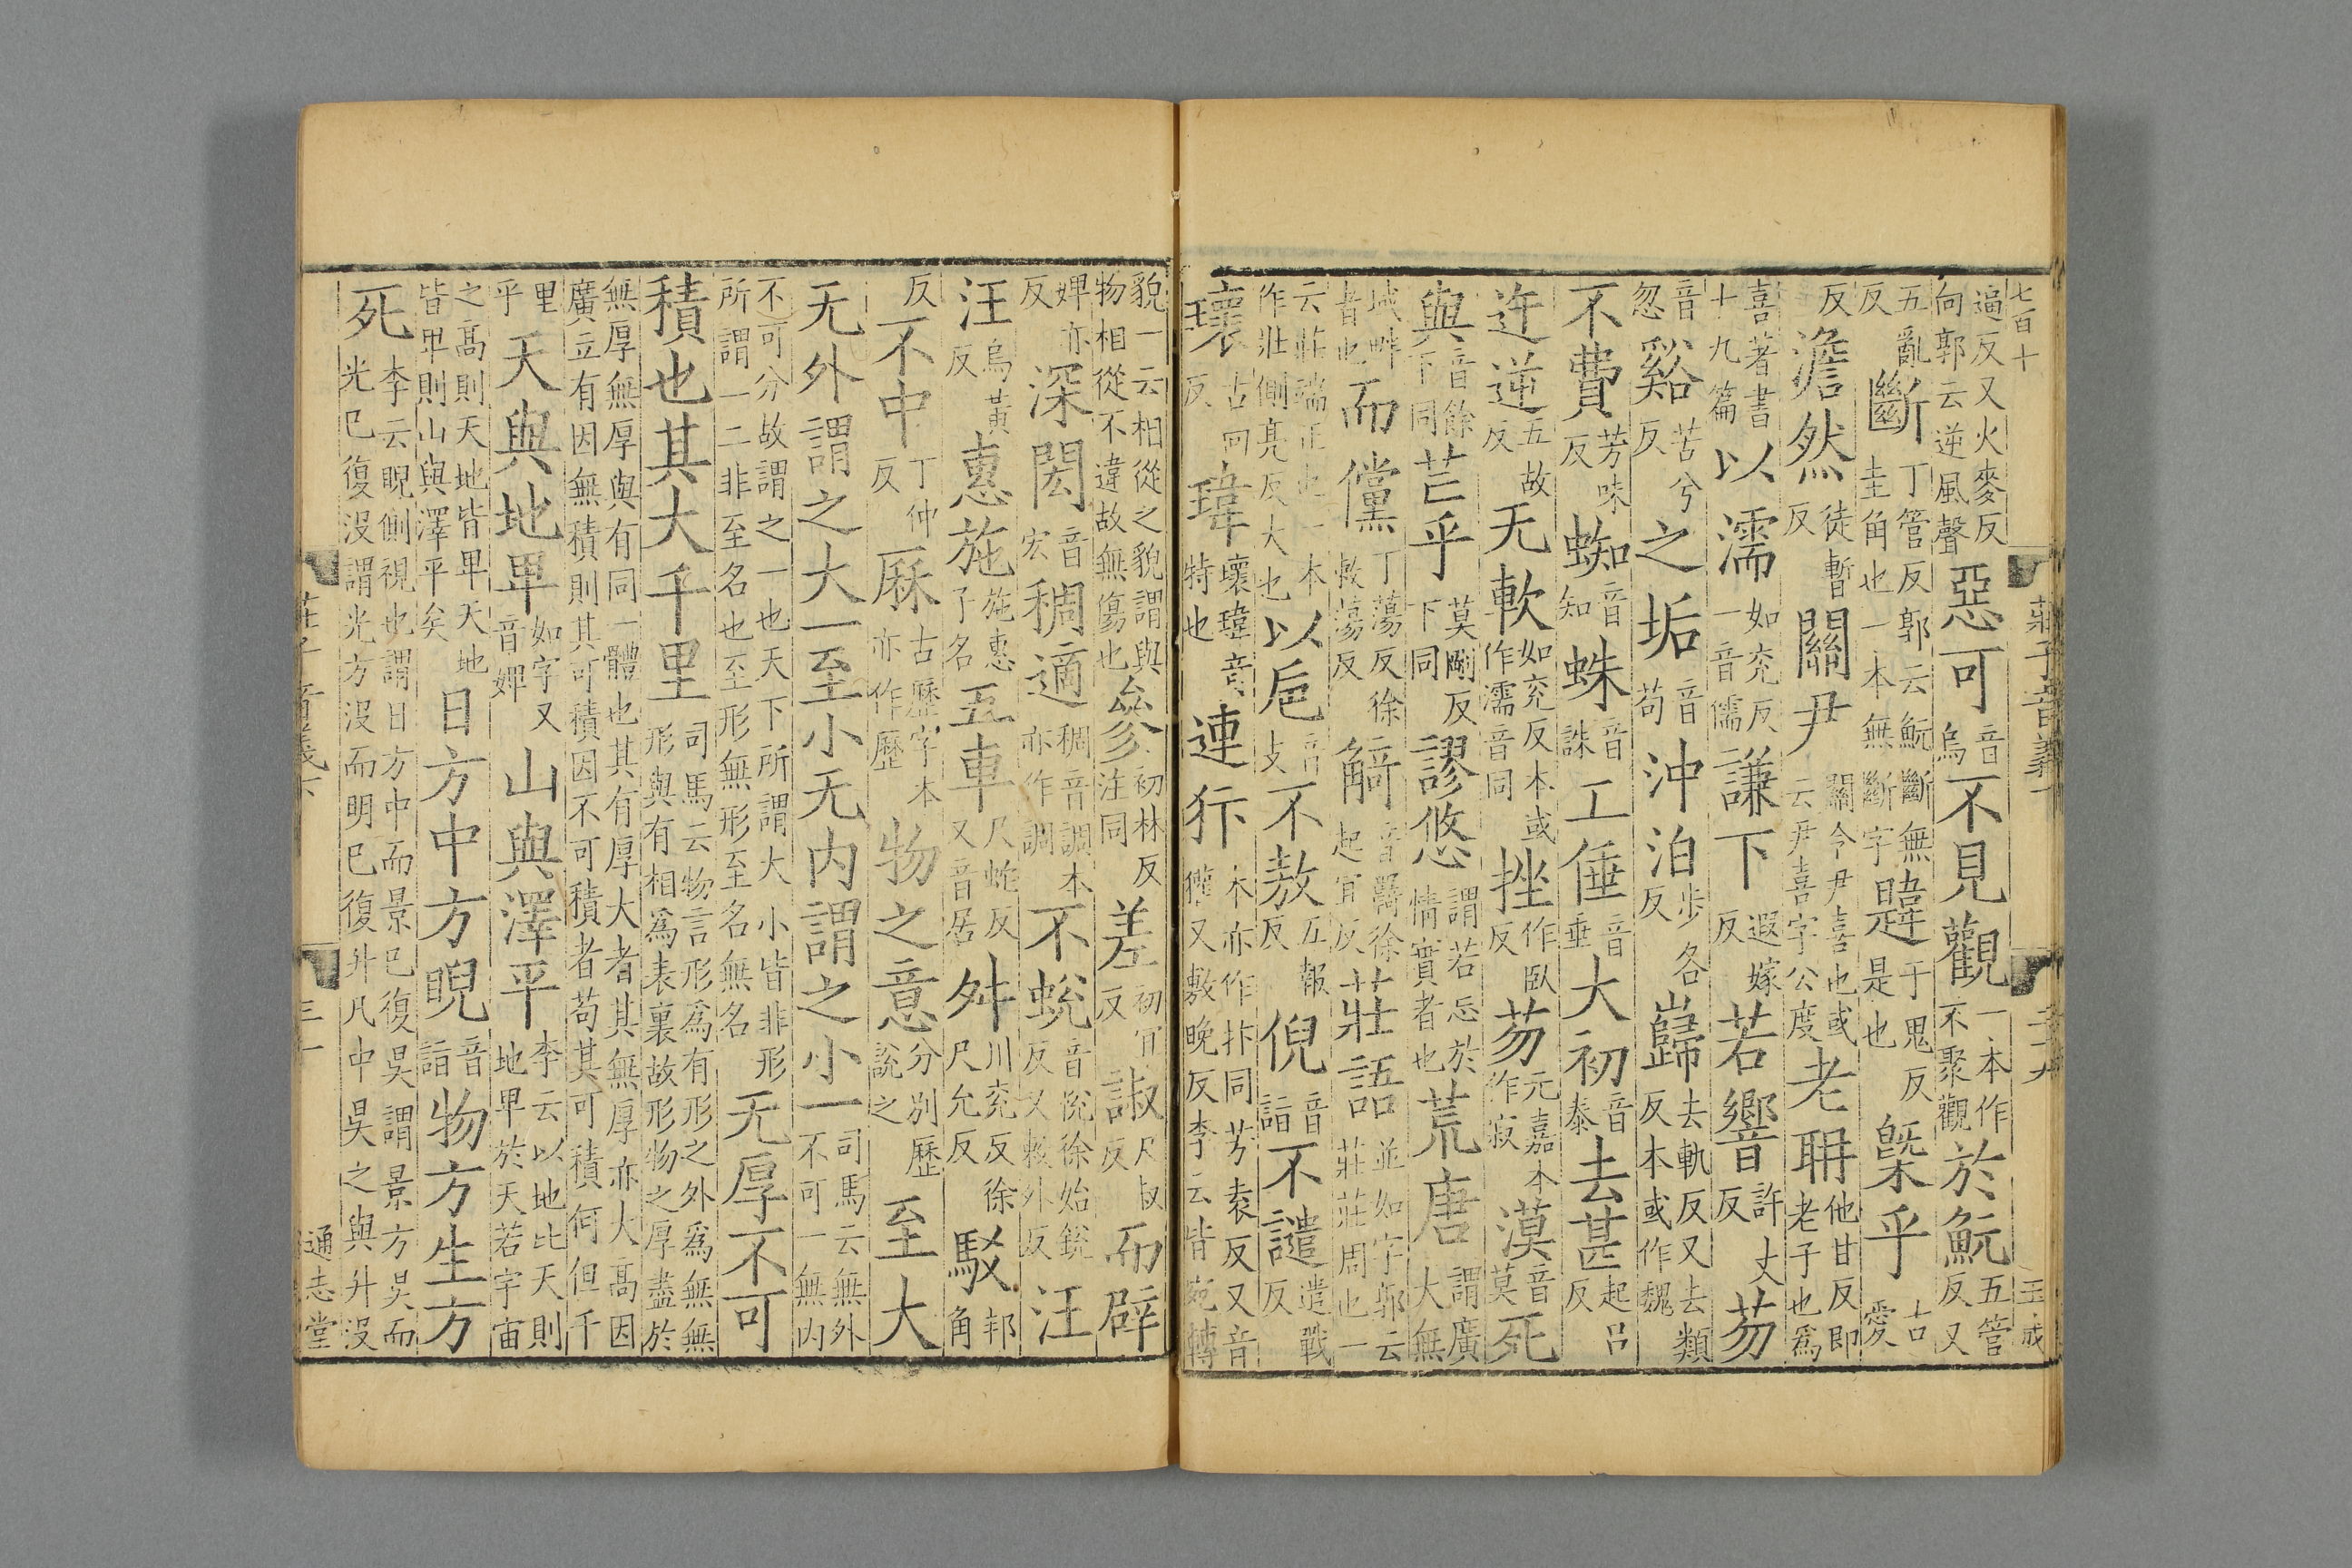 七百十 莊子音義下 二十九 王成
逼反又火麥反向郭云逆風聲 惡可音烏 不見觀一本作不聚觀 於魭五管反又
五亂反 斷丁管反郭云魭斷無圭角也一本無斷字 韙于鬼反是也 槩乎古愛
反 澹然徒暫反 關尹關令尹喜也或云尹喜字公度 老耼他甘反即老子也爲
喜著書十九篇 以濡如兖反一音儒 謙下遐嫁反 若響許丈反 芴
音忽 谿苦兮反 之垢音苟 沖泊步各反 巋去軌反又去類反本或作魏
不費芳味反 蜘音知 蛛音誅 工倕音垂 大初音泰 去甚起呂反
迕逆五故反 无軟如兖反本或作濡音同 挫作臥反 芴元嘉本作寂 漠音莫 死
與音餘下同 芒乎莫剛反下同 謬悠謂若忘於情實者也 荒唐謂廣大無
域畔者也 而儻丁蕩反徐敕蕩反 觭音羇徐起宜反 莊語並如字郭云莊莊周也一
云莊端正也一本作壯側亮反大也 以巵音支 不敖五報反 倪音詣 不譴遣戰反
瓌古回反 瑋瓌瑋音特也 連犿本亦作抃同芳袁反又音獾又敷晚反李云皆宛轉
貌一云相從之貌謂與物相從不違故無傷也 參初林反注同 差初宜反 諔尺叔反 而辟
婢亦反 深閎音宏 稠適稠音調本亦作調 不蛻音悅徐始銳反又敕外反 汪
汪烏黃反 惠施施惠子名 五車尺蛇反又音居 舛川兖反徐尺允反 駮邦角
反 不中丁仲反 厤古歷字本亦作歷 物之意分別歷說之 至大
无外謂之大一至小无内謂之小一司馬云無外不可一無内
不可分故謂之一也天下所謂大小皆非形所謂一二非至名也至形無形至名無名 无厚不可
積也其大千里司馬云物言形爲有形之外爲無無形與有相爲表裏故形物之厚盡於
無厚無厚與有同一體也其有厚大者其無厚亦大高因廣立有因無積則其可積因不可積者苟其可積何但千
里乎 天與地卑如字又音婢 山與澤平李云以地比天則地卑於天若宇宙
之高則天地皆卑天地皆卑則山與澤平矣 日方中方睨音詣 物方生方
死李云睨側視也謂日方中而景已復昃謂景方昃而光已復沒謂光方沒而明已復升凡中昃之與升沒
莊子音義下 三十 通志堂